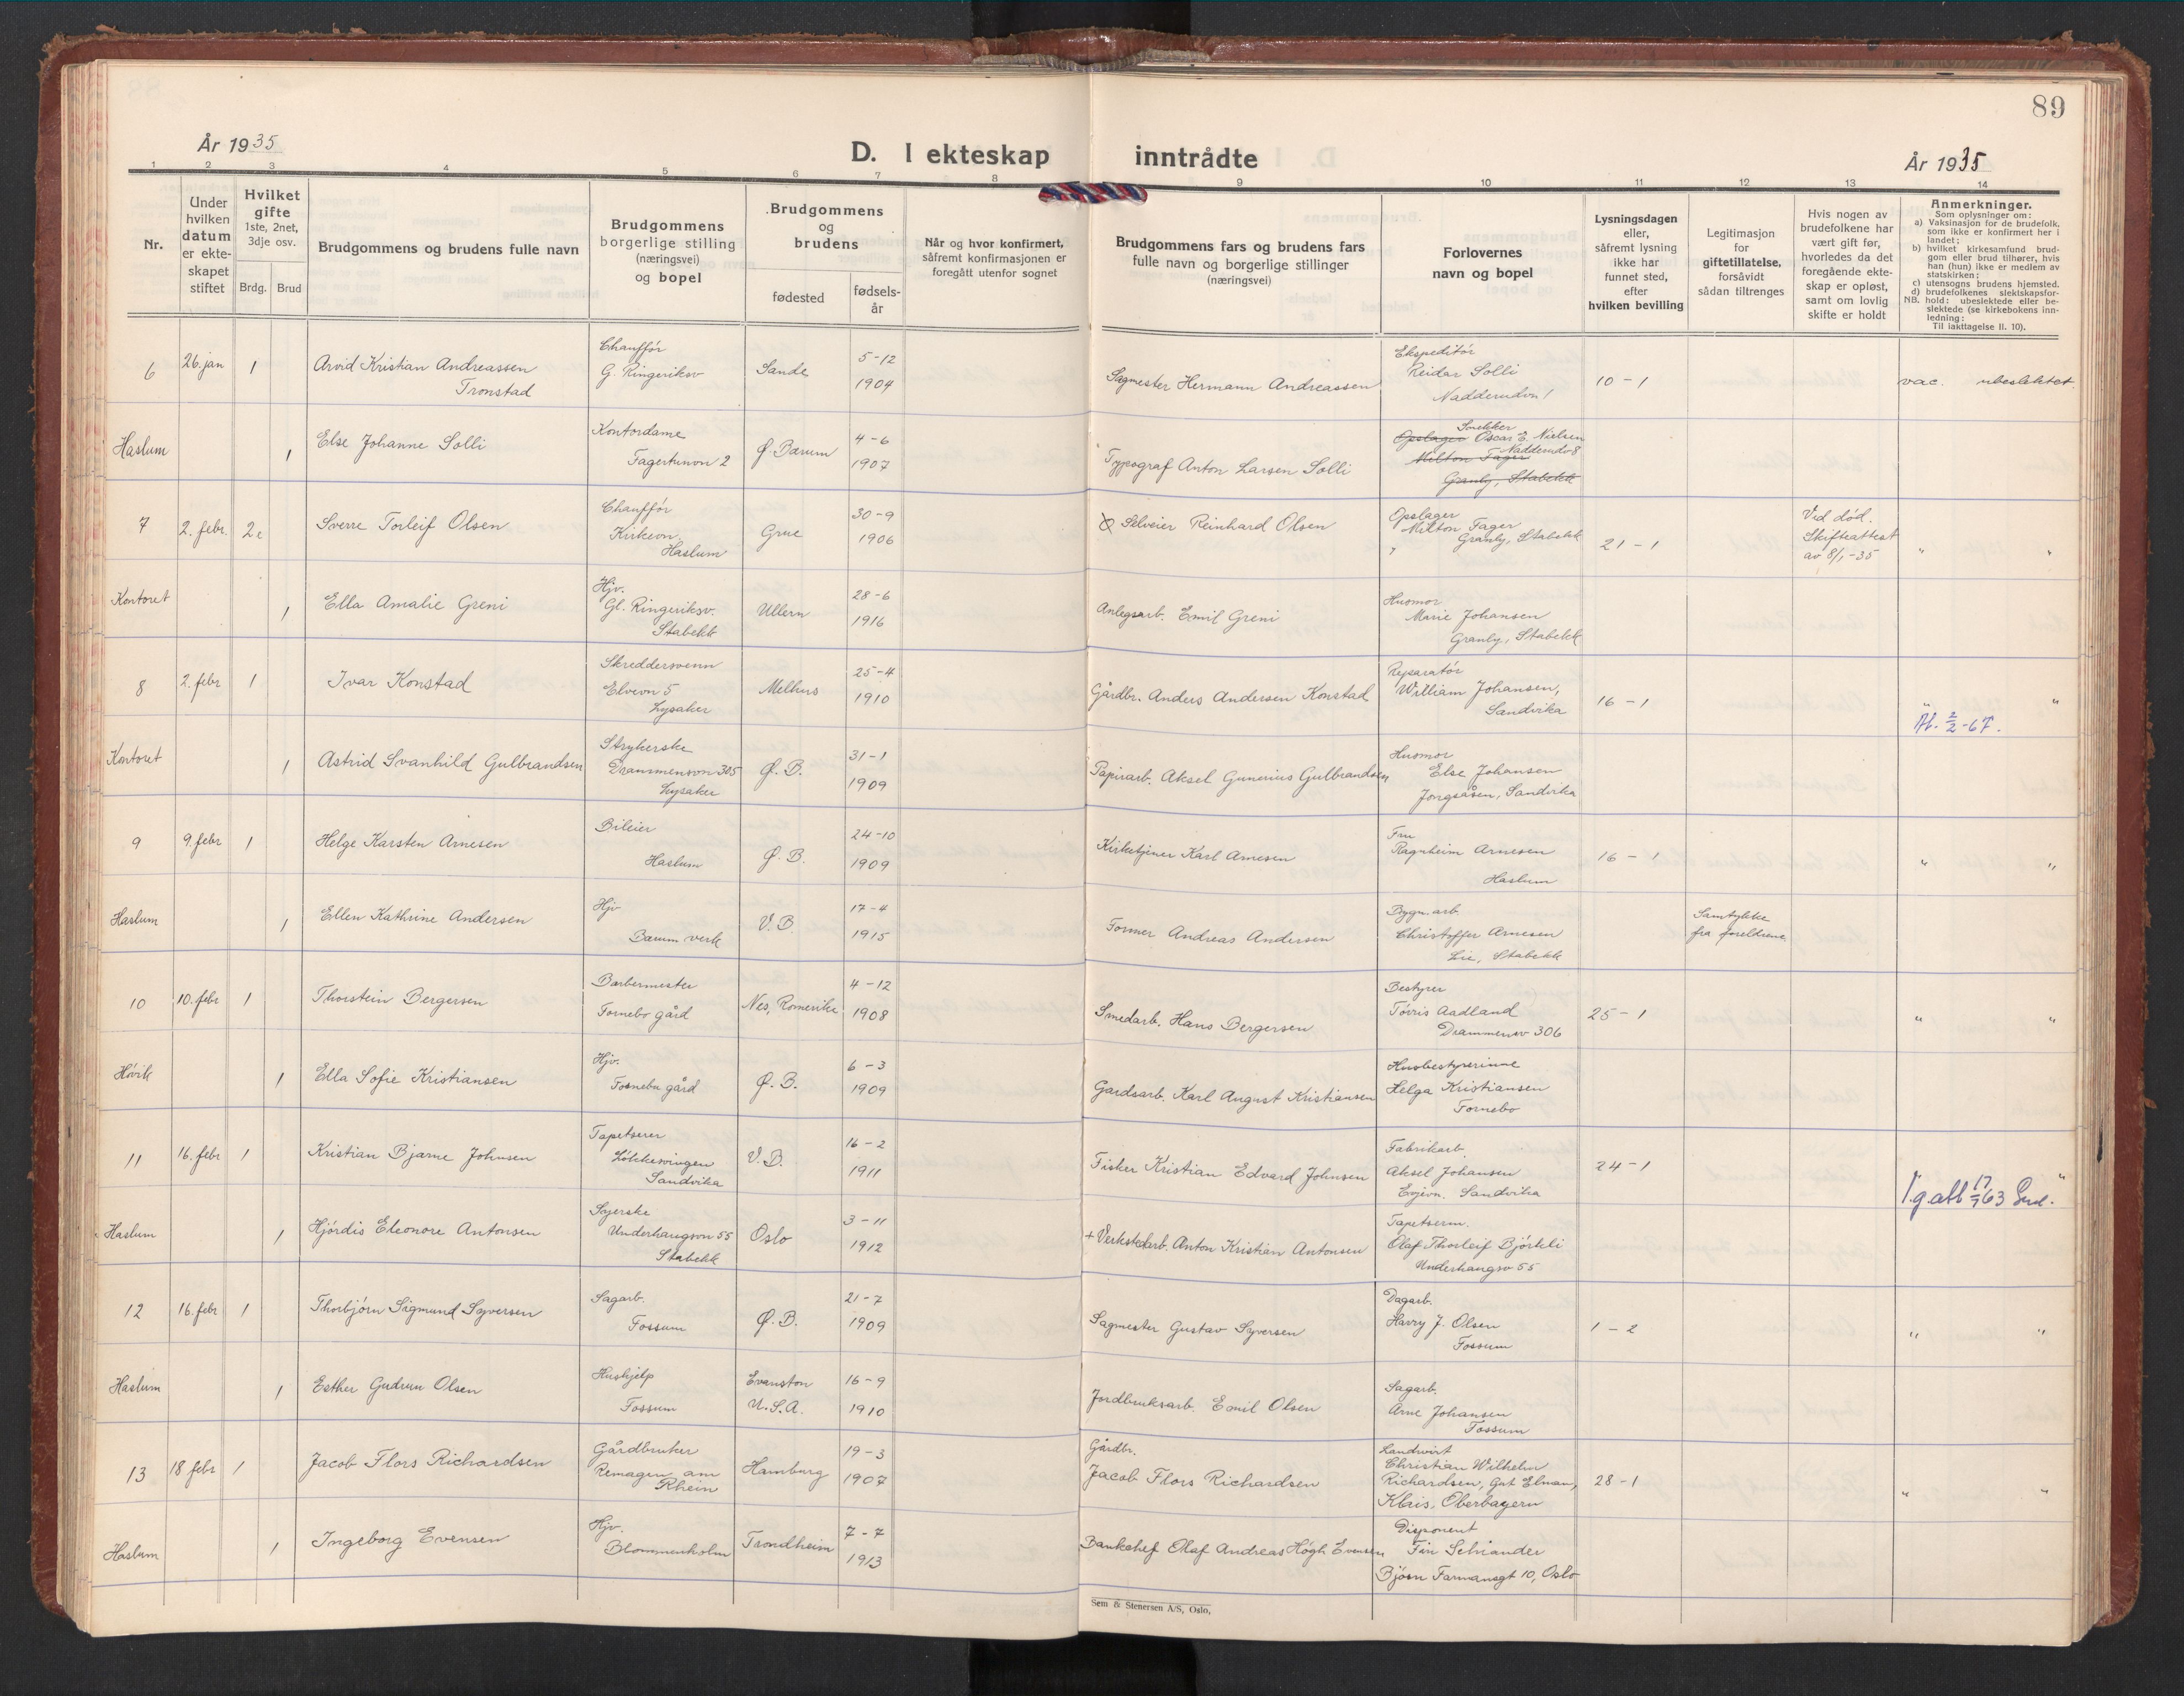 89
År 1935
D. I ekteskap inntrådte
År 1935
1 2 3 4 5 6 7 8 9 10 11 12 13 14
Nr.
Under
hvilken
datum
er ekte-
skapet
stiftet
Hvilket
gifte
1ste, 2net,
3dje osv.
Brdg. Brud
Brudgommens og brudens fulle navn
Brudgommens
borgerlige stilling
(næringsvei)
og bopel
Brudgommens
og
brudens
fødested
fødsels-
år
Når og hvor konfirmert,
såfremt konfirmasjonen er
foregått utenfor sognet
Brudgommens fars og brudens fars
fulle navn og borgerlige stillinger
(næringsvei)
Forlovernes
navn og bopel
Lysningsdagen
eller,
såfremt lysning
ikke har
funnet sted,
efter
hvilken bevilling
Legitimasjon
for
giftetillatelse,
forsåvidt
sådan tiltrenges
Hvis nogen av
brudefolkene har
vært gift før,
hvorledes da det
foregående ekte-
skap er opløst,
samt om lovlig
skifte er holdt
Anmerkninger.
Som oplysninger om:
a) Vaksinasjon for de brudefolk,
som ikke er konfirmert her i
landet;
b) hvilket kirkesamfund brud-
gom eller brud tilhører, hvis
han (hun) ikke er medlem av
statskirken;
c) utensogns brudens hjemsted.
d) brudefolkenes slektskapsfor-
NB. hold: ubeslektede eller be-
slektede (se kirkebokens inn-
ledning:
Til iakttagelse II. 10).
6 26. jan 1
Arvid Kristian Andreassen
Tronstad
Chauffør
G. Ringeriksv
Sande
5-12
1904
Sagmester Hermann Andreassen
Ekspeditør
Reidar Solli
Nadderudvn 1
10-1
vac. ubeslektet.
Haslum 1
Else Johanne Solli
Kontordame
Fagertunvn 2
Ø. Bærum
4-6
1907
Typograf Anton Larsen Solli
Snekker
Opslager Oscar E. Nielsen
Nadderudv 8
Milton Fager
Granly, Stabekk
7 2. febr. 2e
Sverre Torleif Olsen
Chauffør
Kirkevn.
Haslum
Grue
30-9
1906
Selveier Reinhard Olsen
Opslager
Milton Fager
Granly, Stabekk
21-1
Ved død.
Skifteattest
av 8/1-35
" "
Kontoret 1
Ella Amalie Greni
Hjv.
Gl. Ringeriksv.
Stabekk
Ullern
28-6
1916
Anlegsarb. Emil Greni
Husmor
Marie Johansen
Granly, Stabekk
8 2. febr 1
Ivar Konstad
Skreddersvenn
Elvevn 5
Lysaker
Melhus
25-4
1910
Gårdbr. Anders Andersen Konstad
Reparatør
William Johansen,
Sandvika
16-1
" "
At. 2/2-67.
Kontoret 1
Astrid Svanhild Gulbrandsen
Strykerske
Drammensvn 305
Lysaker
Ø. B.
31-1
1909
Papirarb. Aksel Gunerius Gulbrandsen
Husmor
Else Johansen
Jongsåsen, Sandvika
9 9. febr 1
Helge Karsten Arnesen
Bileier
Haslum
Ø. B.
24-10
1909
Kirketjener Karl Arnesen
Fru
Ragnheim Arnesen
Haslum
16-1
" "
Haslum 1
Ellen Kathrine Andersen
Hjv
Bærum verk
V. B.
17-4
1915
Former Andreas Andersen
Bygn.arb.
Christoffer Arnesen
Lie, Stabekk
Samtykke
fra foreldrene
10 10. febr 1
Thorstein Bergersen
Barbermester
Fornebo gård
Nes, Romerike
4-12
1908
Smedarb. Hans Bergersen
Bestyrer
Tørris Aadland
Drammensv 306
25-1
" "
Høvik 1
Ella Sofie Kristiansen
Hjv.
Fornebu gård
Ø. B.
6-3
1909
Gardsarb. Karl August Kristiansen
Husbestyrerinne
Helga Kristiansen
Fornebo
11 16. febr 1
Kristian Bjarne Johnsen
Tapetserer
Løkkesvingen
Sandvika
V. B.
16-2
1911
Fisker Kristian Edvard Johnsen
Fabrikarb.
Aksel Johansen
Evjevn. Sandvika
24-1
"
V.g.att 17/7 63
Haslum 1
Hjørdis Eleonore Antonsen
Syerske
Underhaugsvn 55
Stabekk
Oslo
3-11
1912
+ Verkstedarb. Anton Kristian Antonsen
Tapetserm.
Olaf Thorleif Bjørkli
Underhaugsv 55
12 16. febr 1
Thorbjørn Sigmund Syversen
Sagarb.
Fossum
Ø. B.
21-7
1909
Sagmester Gustav Syversen
Dagarb.
Harry J. Olsen
Fossum
1-2
" "
Haslum 1
Esther Gudrun Olsen
Hushjelp
Fossum
Evanston
U.S.A.
16-9
1910
Jordbruksarb. Emil Olsen
Sagarb.
Arne Johansen
Fossum
13 18 febr 1
Jacob Flors Richardsen
Gårdbruker
Remagen am
Rhein
Hamburg
19-3
1907
Gårdbr.
Jacob Flors Richardsen
Landwirt
Christian Wilhelm
Richardsen, Gut Elmau,
Klais, Oberbayern
28-1
" "
Haslum 1
Ingeborg Evensen
Hjv.
Blommenholm
Trondheim
7-7
1913
Bankchef Olaf Andreas Høgh Evensen
Disponent
Fin Schiander
Bjørn Farmansgt 10, Oslo
Sem & Stenersen A/S, Oslo,